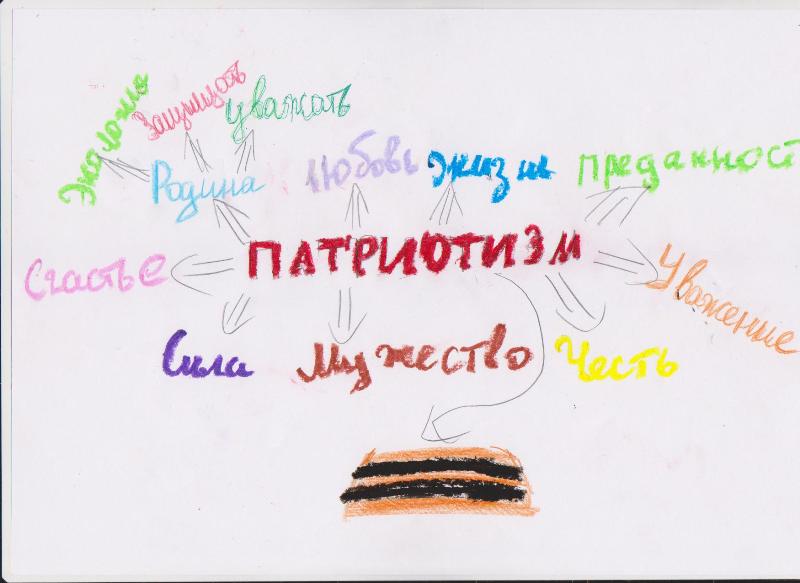 Экология
Защищать
уважать
Родина
Любовь
Жизнь
преданност
ПАТРИОТИЗМ
Счастье
Уважение
Сила
Мужество
Честь